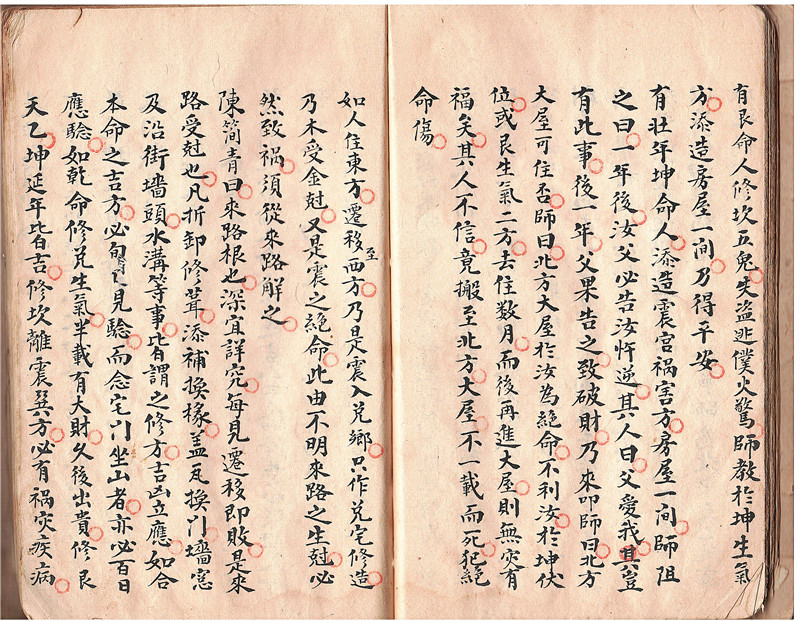 有艮命人修坎五鬼失盗逃僕火驚師教於坤生氣
方添造房屋一间乃得平安
有壮年坤命人添造震宫祸害方房屋一间師阻
之曰一年後汝父必告汝忤逆其人曰父愛我其豈
有此事後一年父果告之致破財乃來叩師曰北方
大屋可住否師曰北方大屋於汝為絕命不利汝於坤伏
位或艮生氣二方去住数月而後再進大屋則無灾有
福矣其人不信竟搬至北方大屋不一載而死犯絕
命傷
如人住東方遷移至西方乃是震入兑鄉只作兑宅修造
乃木受金尅又是震之絕命此由不明來路之生尅必
然致祸須從來路解之
陳簡青曰來路根也深宜詳究每見遷移即敗是來
路受尅也凡折卸修葺添補換椽盖瓦換门墻窓
及沿街墻頭水溝等事皆謂之修方吉凶立應如合
本命之吉方必旬日見驗而念宅门坐山者亦必百日
應驗如乾命修兑生氣半載有大財久後出貴修艮
天乙坤延年皆吉修坎離震巽方必有祸灾疾病